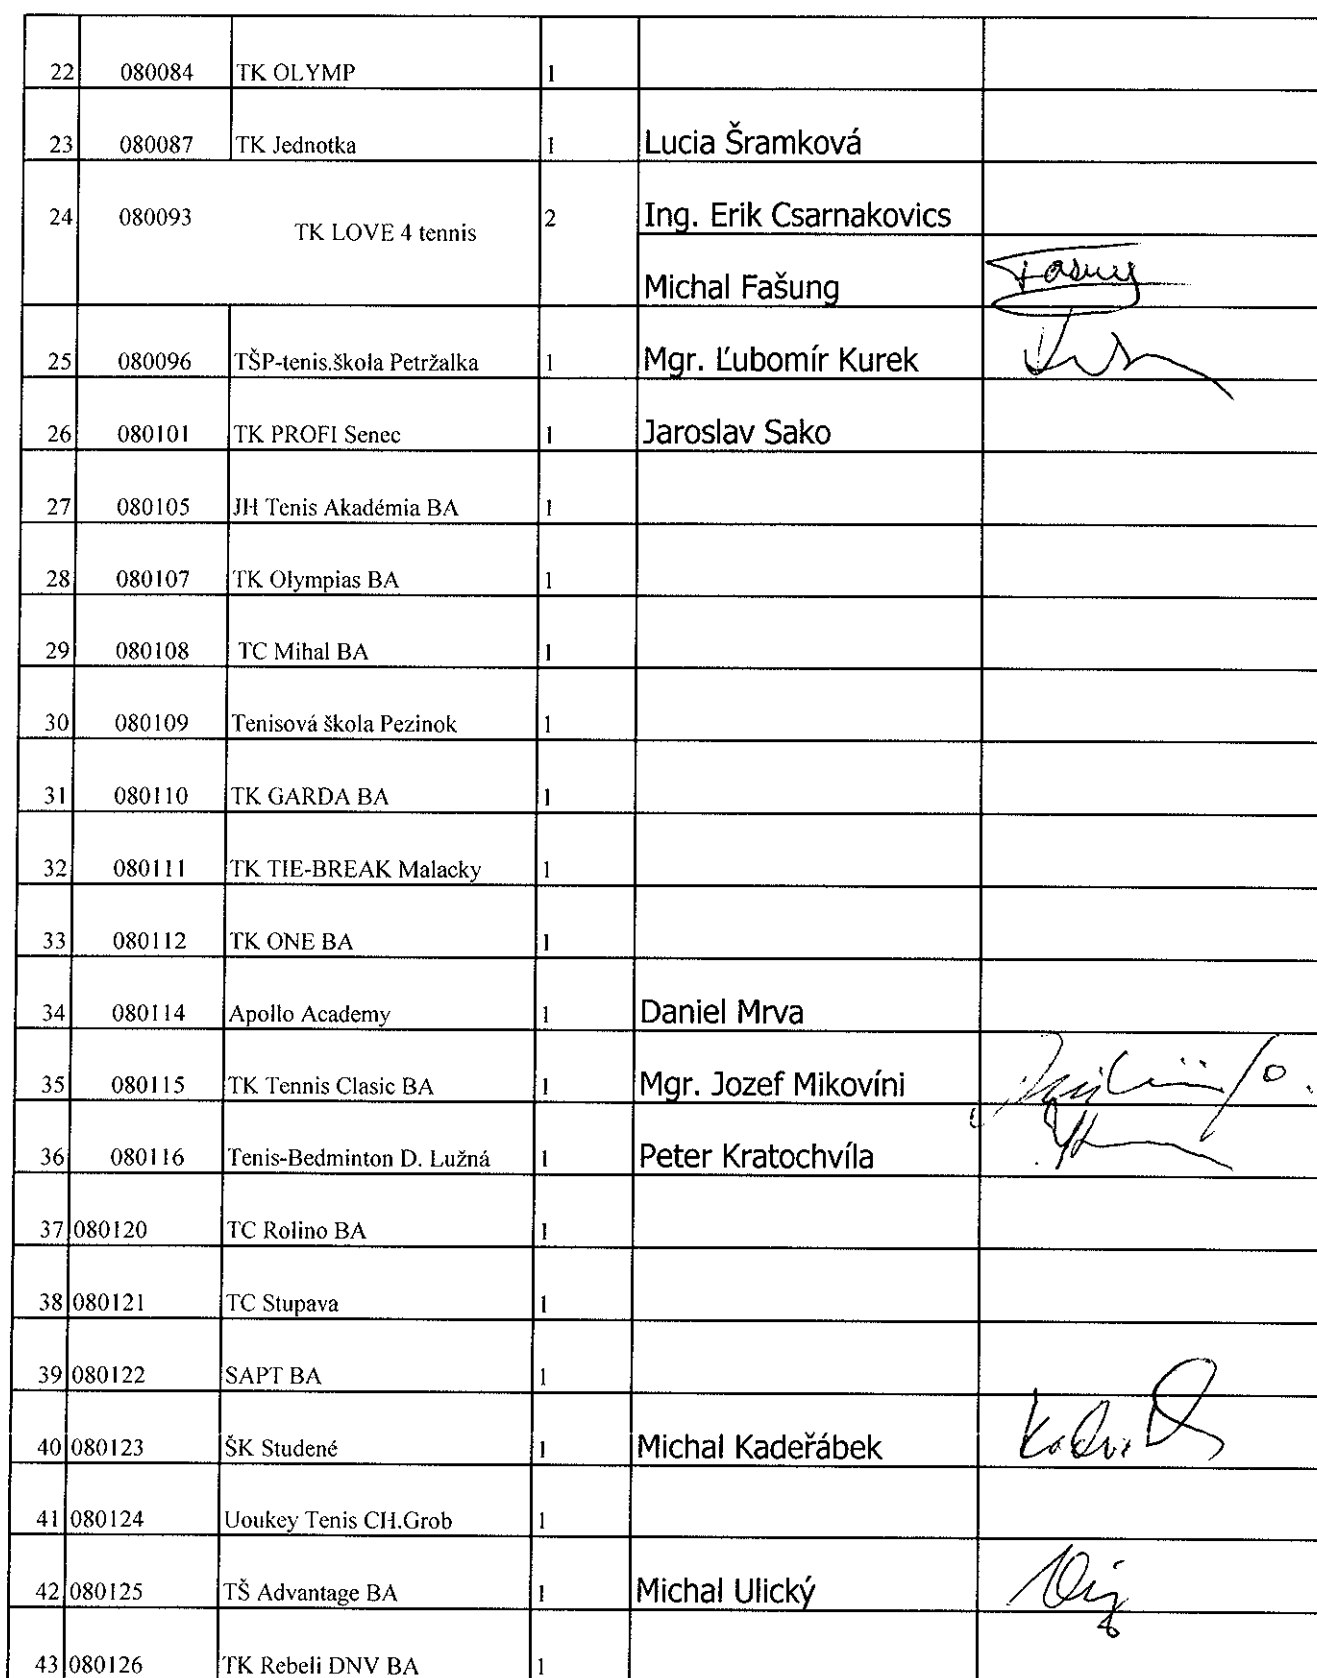 22 080084 TK OLYMP 1
23 080087 TK Jednotka 1 Lucia Šramková
24 080093 TK LOVE 4 tennis 2 Ing. Erik Csarnakovics
Michal Fašung Fašung
25 080096 TŠP-tenis.škola Petržalka 1 Mgr. Ľubomír Kurek
26 080101 TK PROFI Senec 1 Jaroslav Sako
27 080105 JH Tenis Akadémia BA 1
28 080107 TK Olympias BA 1
29 080108 TC Mihal BA 1
30 080109 Tenisová škola Pezinok 1
31 080110 TK GARDA BA 1
32 080111 TK TIE-BREAK Malacky 1
33 080112 TK ONE BA 1
34 080114 Apollo Academy 1 Daniel Mrva
35 080115 TK Tennis Clasic BA 1 Mgr. Jozef Mikovíni
36 080116 Tenis-Bedminton D. Lužná 1 Peter Kratochvíla
37 080120 TC Rolino BA 1
38 080121 TC Stupava 1
39 080122 SAPT BA 1
40 080123 ŠK Studené 1 Michal Kadeřábek
41 080124 Uoukey Tenis CH.Grob 1
42 080125 TŠ Advantage BA 1 Michal Ulický
43 080126 TK Rebeli DNV BA 1